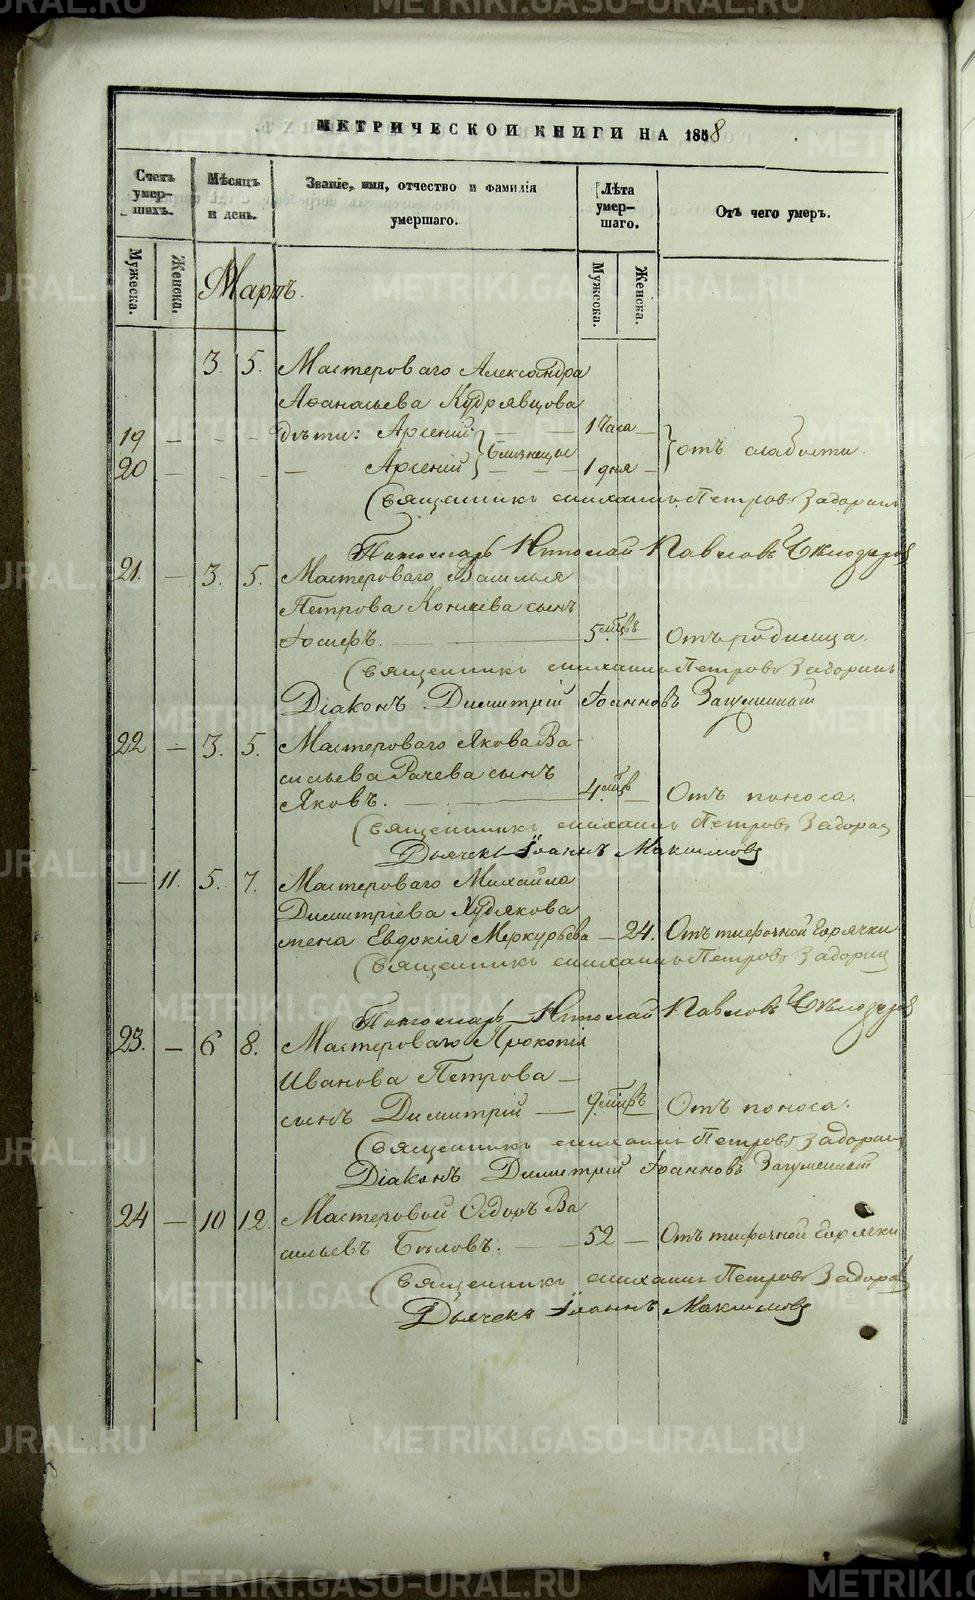 МЕТРИЧЕСКОЙ КНИГИ НА 1858
Счетъ умер-шихъ.
Мѣсяцъ и день.
Званіе, имя, отчество и фамилія умершаго.
Лѣта умер-шаго.
Отъ чего умеръ.
Мужеска.
Женска.
Мартъ.
Мужеска.
Женска.
3. 5. Мастероваго Александра
Аѳанасьева Кудрявцова
19 — — — дѣти: Арсеній 1 часа —
20 — — Арсеній близнецы 1 дня — отъ слабости
Священникъ Михаилъ Петровъ Задоринъ
Пономарь Николай Павловъ
21. — 3. 5. Мастероваго Василья
Петрова Коняева сынъ
Іосифъ. 5 мцвъ Отъ родимца.
Священникъ Михаилъ Петровъ Задоринъ
Діаконъ Димитрій Іоанновъ Загуменный
22 — 3. 5. Мастероваго Якова Ва-
сильева Рачева сынъ
Яковъ. 4 мцв — Отъ поноса.
Священникъ Михаилъ Петровъ Задорин
Дьячекъ Іоаннъ Максимовъ
— 11. 5. 7. Мастероваго Михайла
Димитріева Худякова
жена Евдокія Меркурьева — 24. Отъ тифочной горячки
Священникъ Михаилъ Петровъ Задорин
Пономарь Николай Павловъ
23. — 6 8. Мастероваго Прокопія
Иванова Петрова —
сынъ Димитрій — 9 мцвъ Отъ поноса.
Священникъ Михаилъ Петровъ Задорин
Діаконъ Димитрій Іоанновъ Загуменный
24 — 10 12. Мастеровой Сидоръ Ва
сильевъ Бѣловъ. — 52 — Отъ тифочной горячки
Священникъ Михаилъ Петровъ Задорин
Дьячекъ Іоаннъ Максимовъ
METRIKI.GASO-URAL.RU